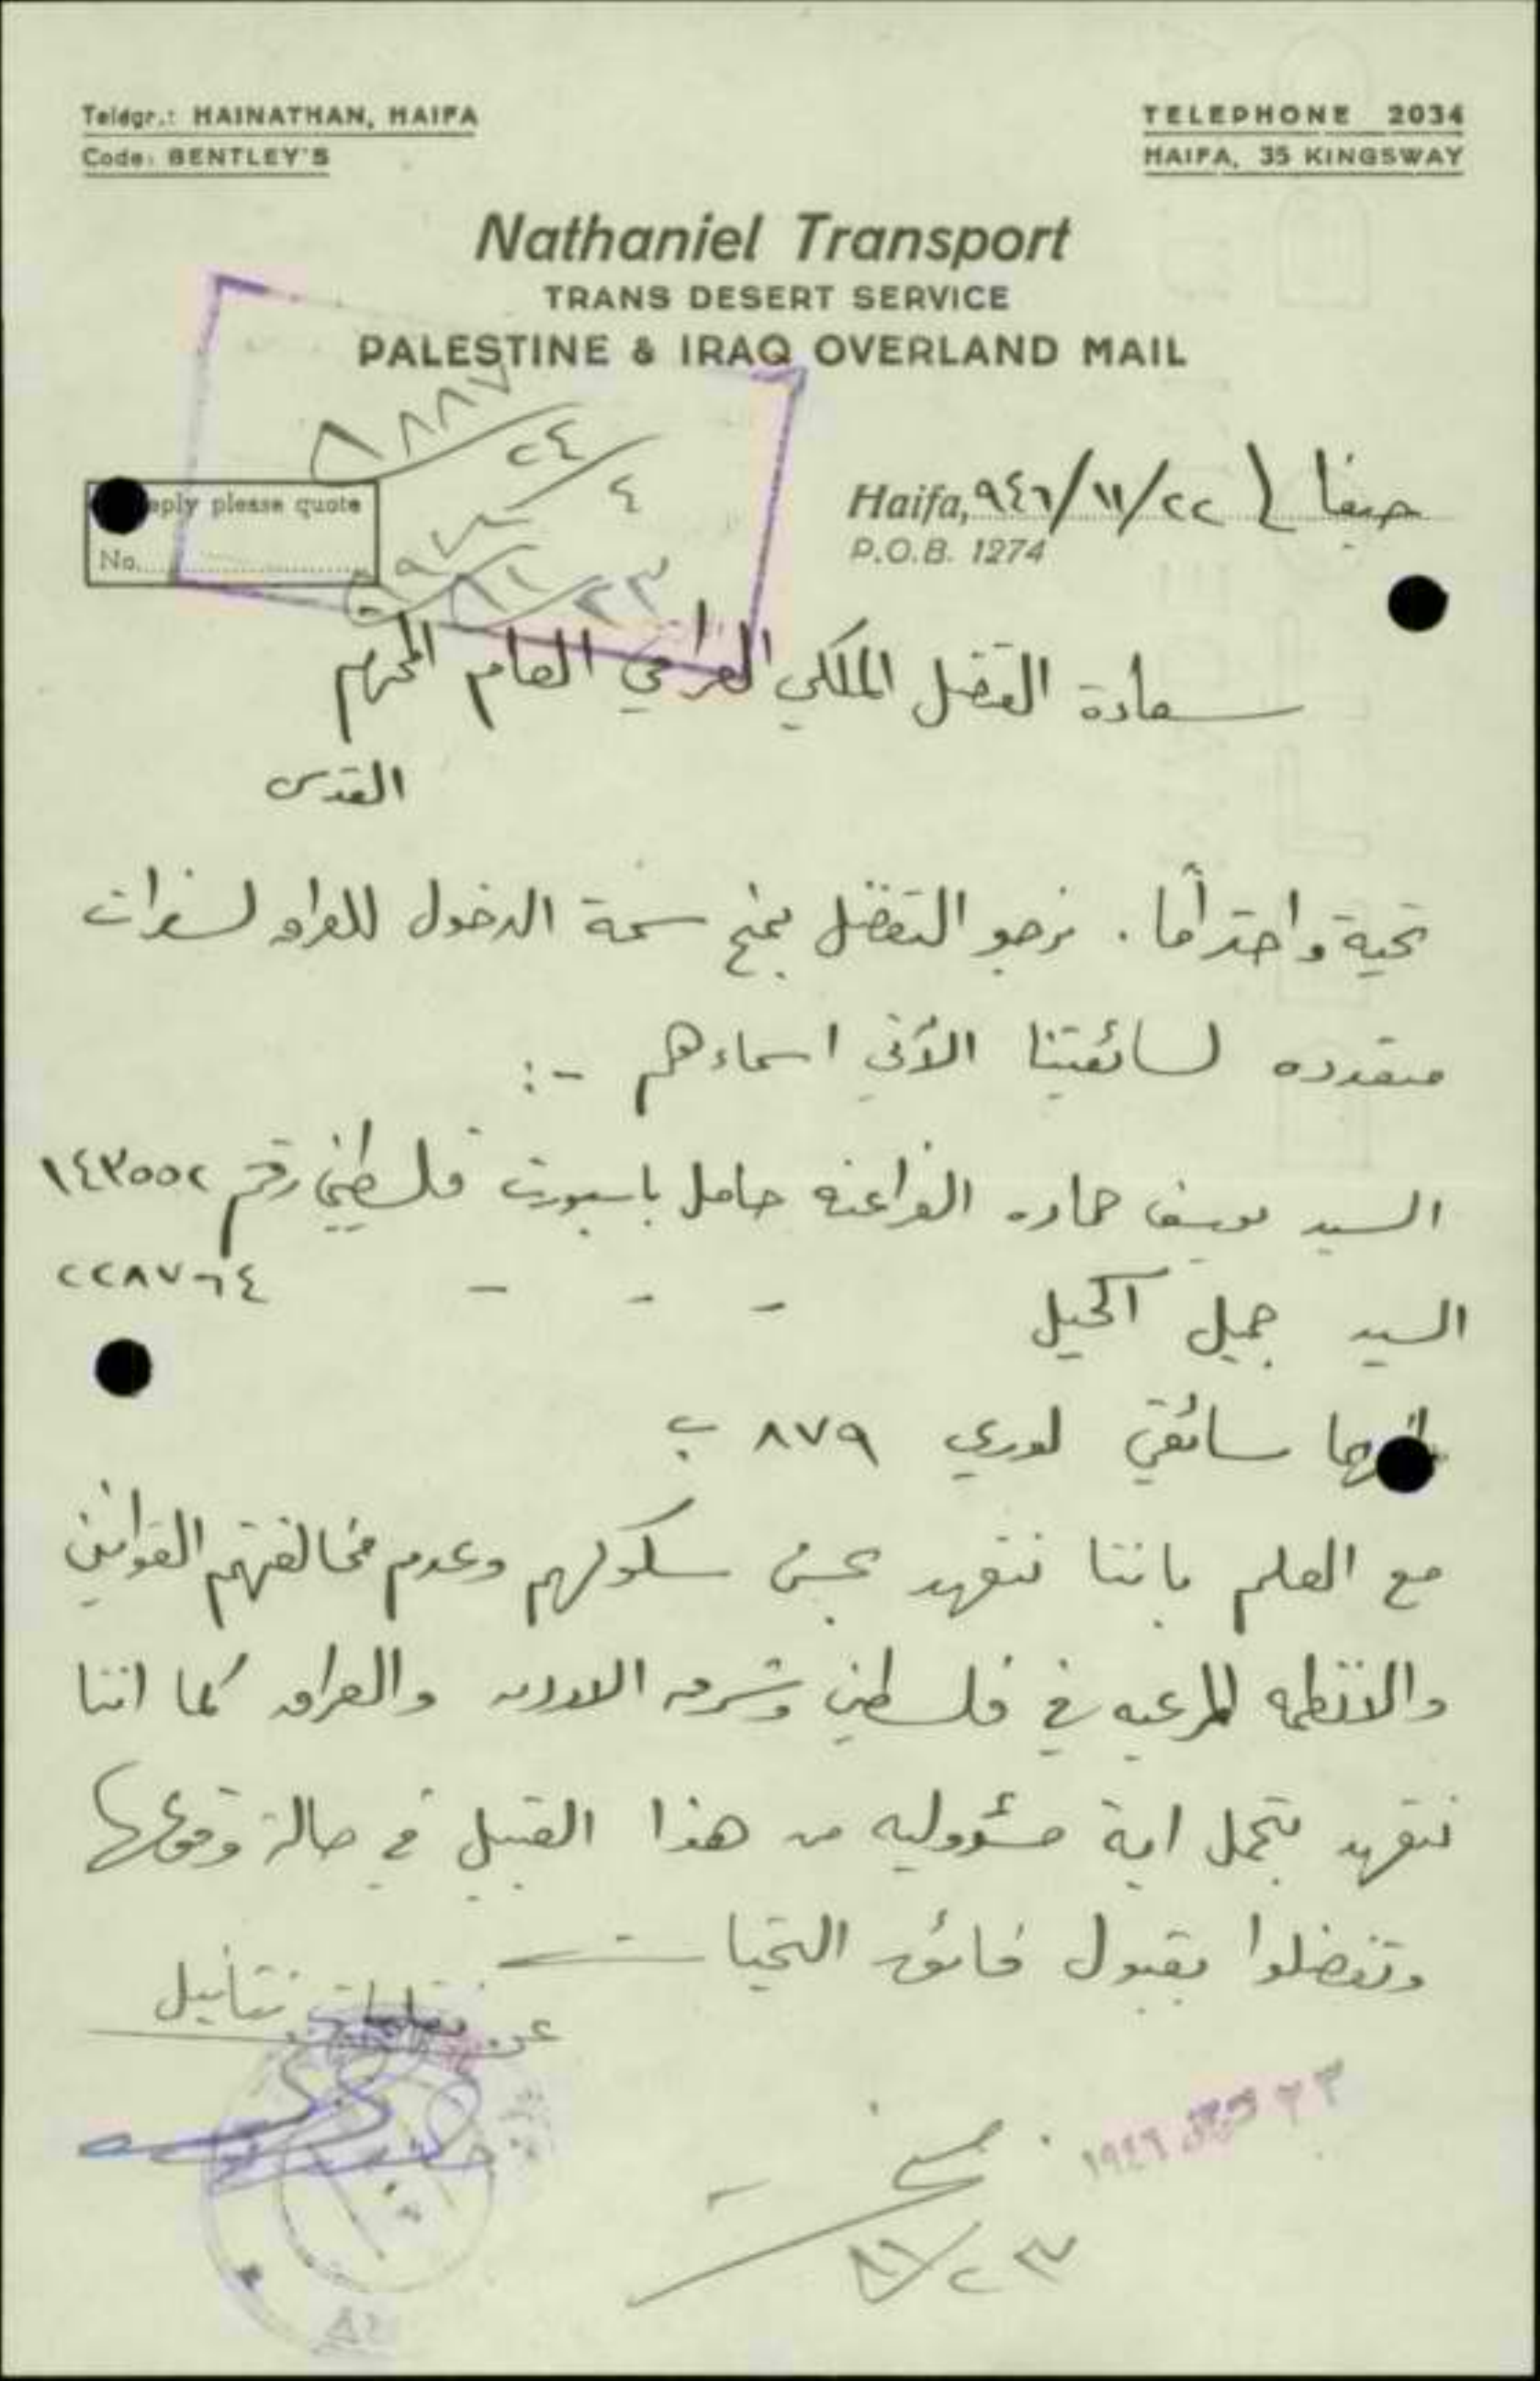 Telegr.: HAINATHAN, HAIFA
Code: BENTLEY'S
TELEPHONE 2034
HAIFA, 35 KINGSWAY
Nathaniel Transport
TRANS DESERT SERVICE
PALESTINE & IRAQ OVERLAND MAIL
eply please quote
No.
Haifa, حيفا في ٩٤٦/١١/٢٢
P.O.B. 1274
سعادة القنصل الملكي العراقي العام المحترم
القدس
تحية واحتراماً. نرجو التفضل بمنح سمة الدخول للعراق لسفرات
متعدده لسائقينا الآتي اسماءهم :-
السيد يوسف حماده الفراعنه حامل باسبورت فلسطيني رقم ١٤٣٥٥٢
السيد جميل الحيل - - - ٢٢٨٧٦٤
سائقي لوري ٨٧٩ ب
مع العلم باننا نتعهد بحسن سلوكهم وعدم مخالفتهم القوانين
والانظمه المرعيه في فلسطين وشرق الاردن والعراق كما اننا
نتعهد بتحمل اية مسؤوليه من هذا القبيل في حالة وقوعها
وتفضلوا بقبول فائق التحيات
عن نقليات نتانيل
٢٣ ١٩٤٦
١١/٢٣